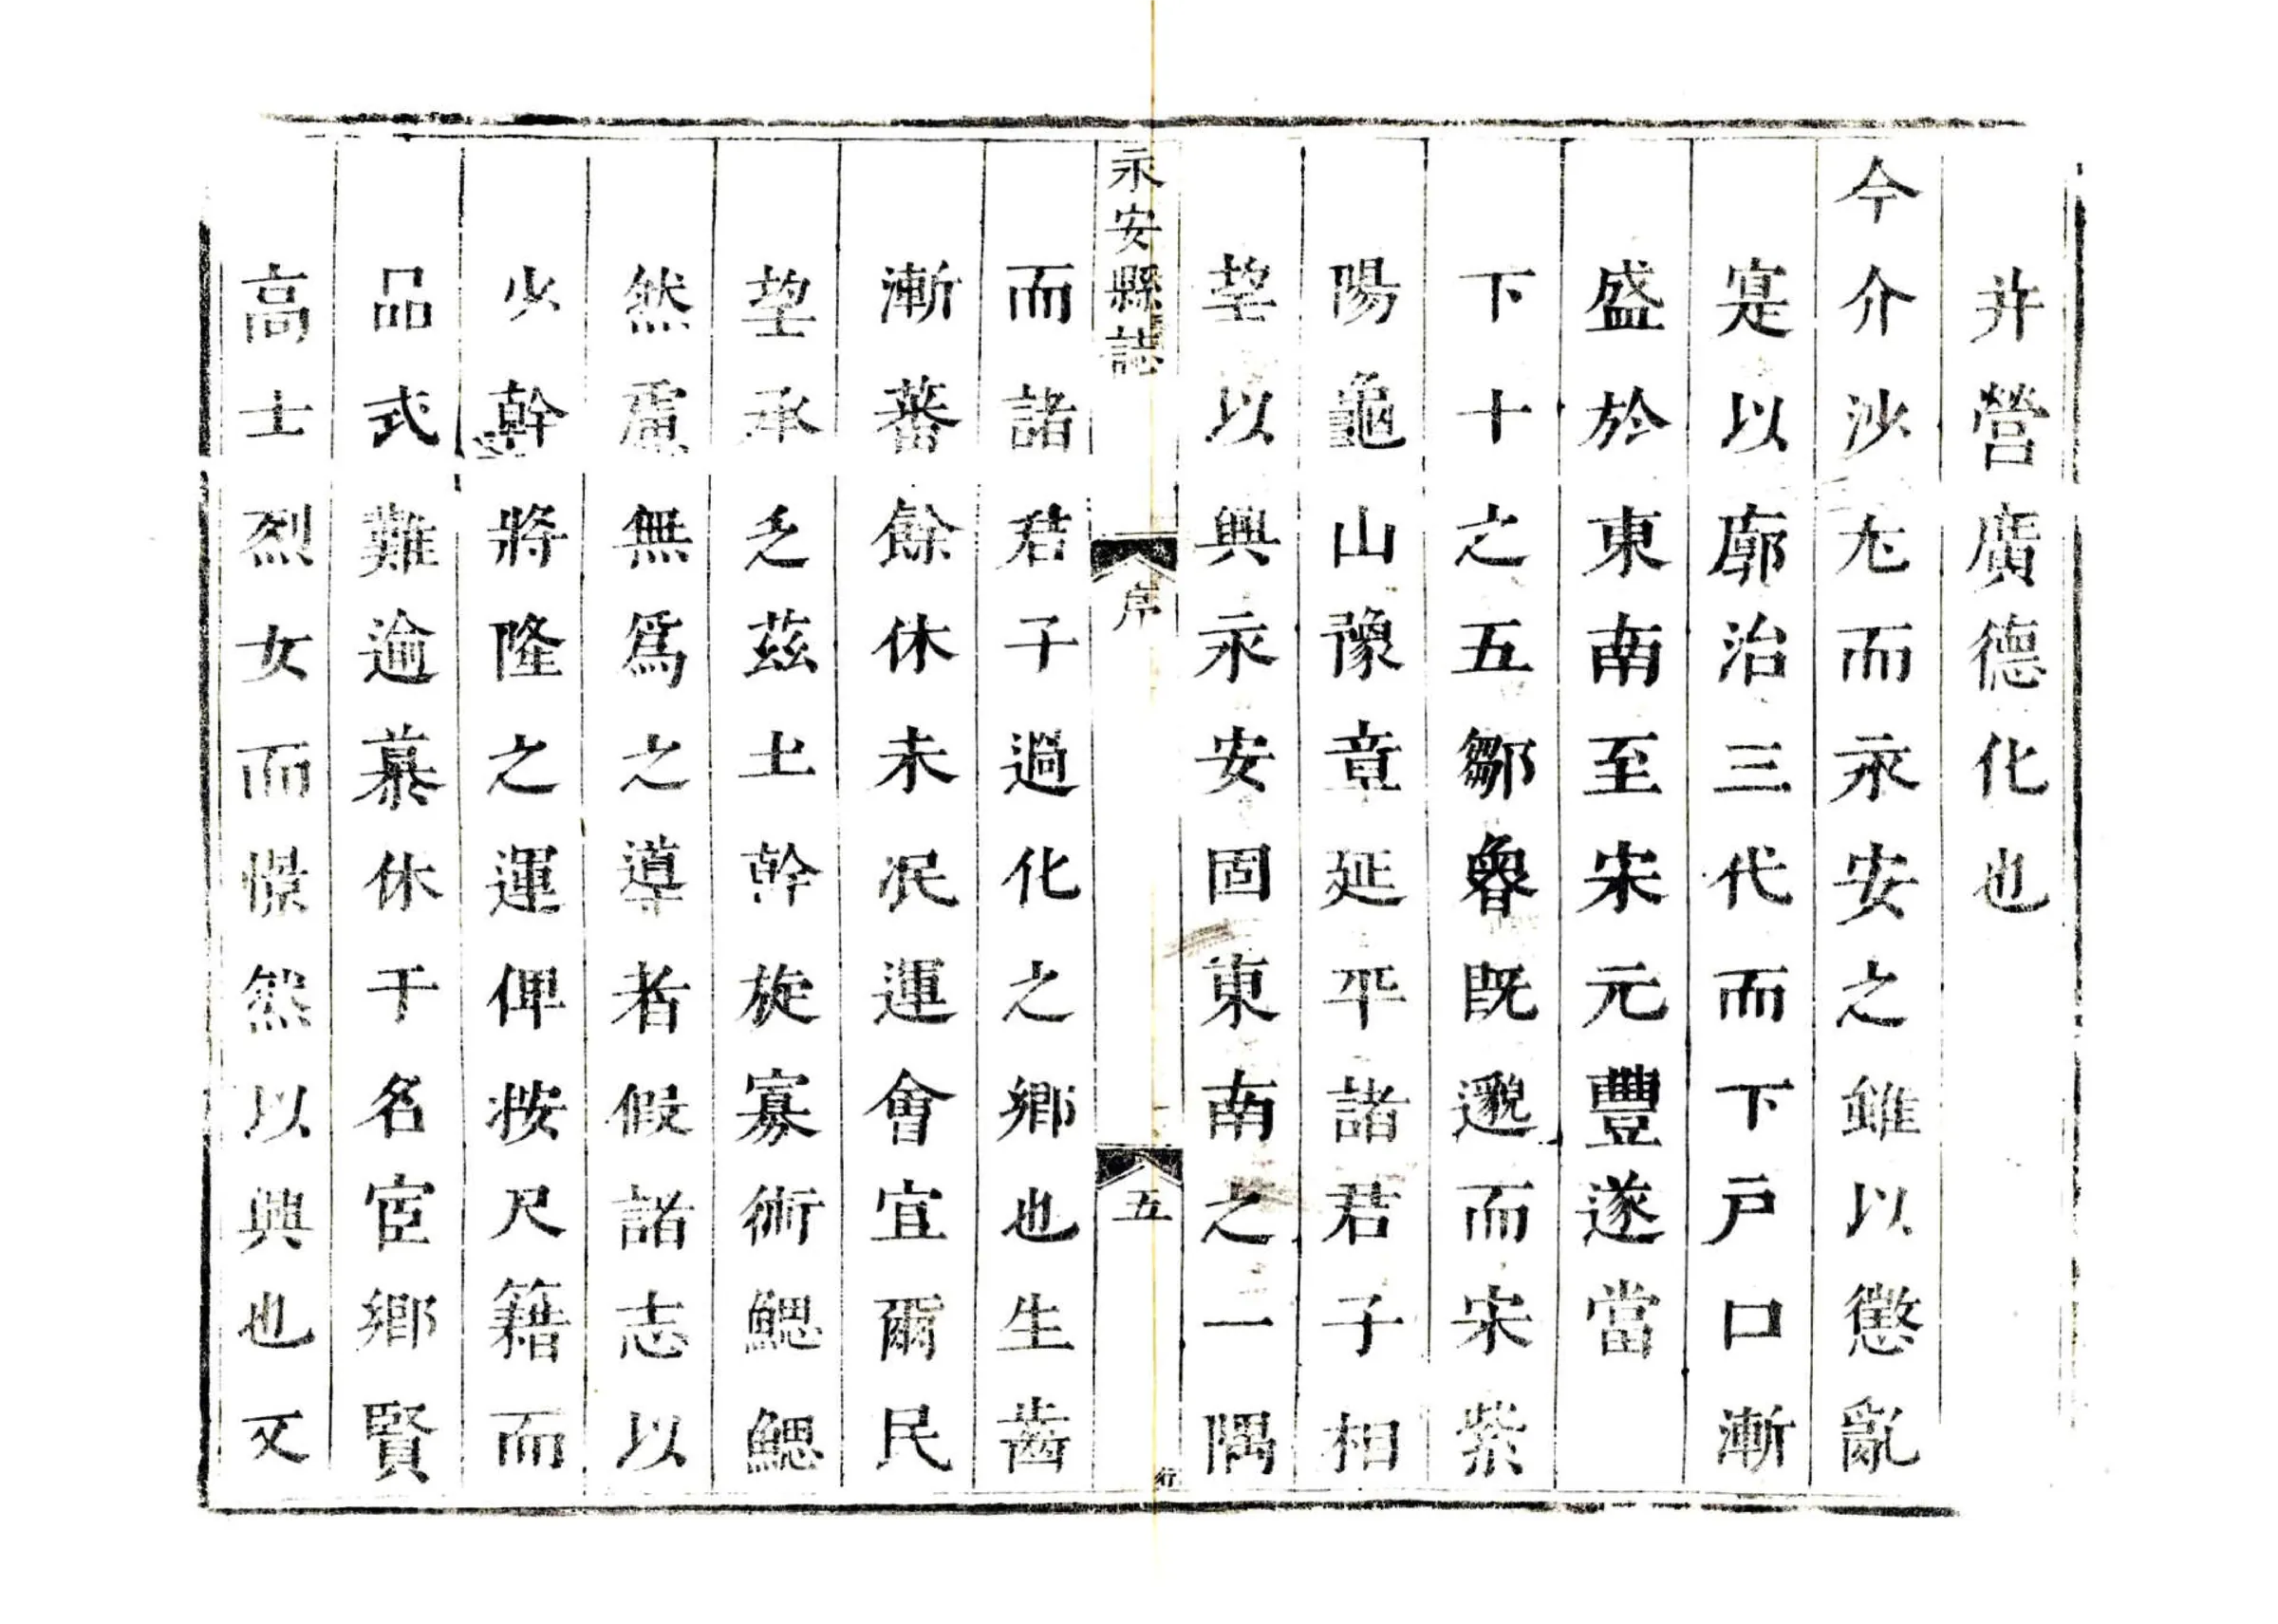 幷營廣德化也
今介沙尤而永安之雖以懲亂
寔以廓治三代而下戶口漸
盛於東南至宋元豐遂當
下十之五鄒魯既邈而宋紫
陽龜山豫章延平諸君子相
望以興永安固東南之一隅
永安縣誌
序
五
行
而諸君子過化之鄉也生齒
漸蕃餘休未泯運會宜爾民
望承乏茲土幹旋寡術鰓鰓
然慮無爲之導者假諸志以
少幹將隆之運俾按尺籍而
品式難逾慕休于名宦鄉賢
高士烈女而憬然以興也文